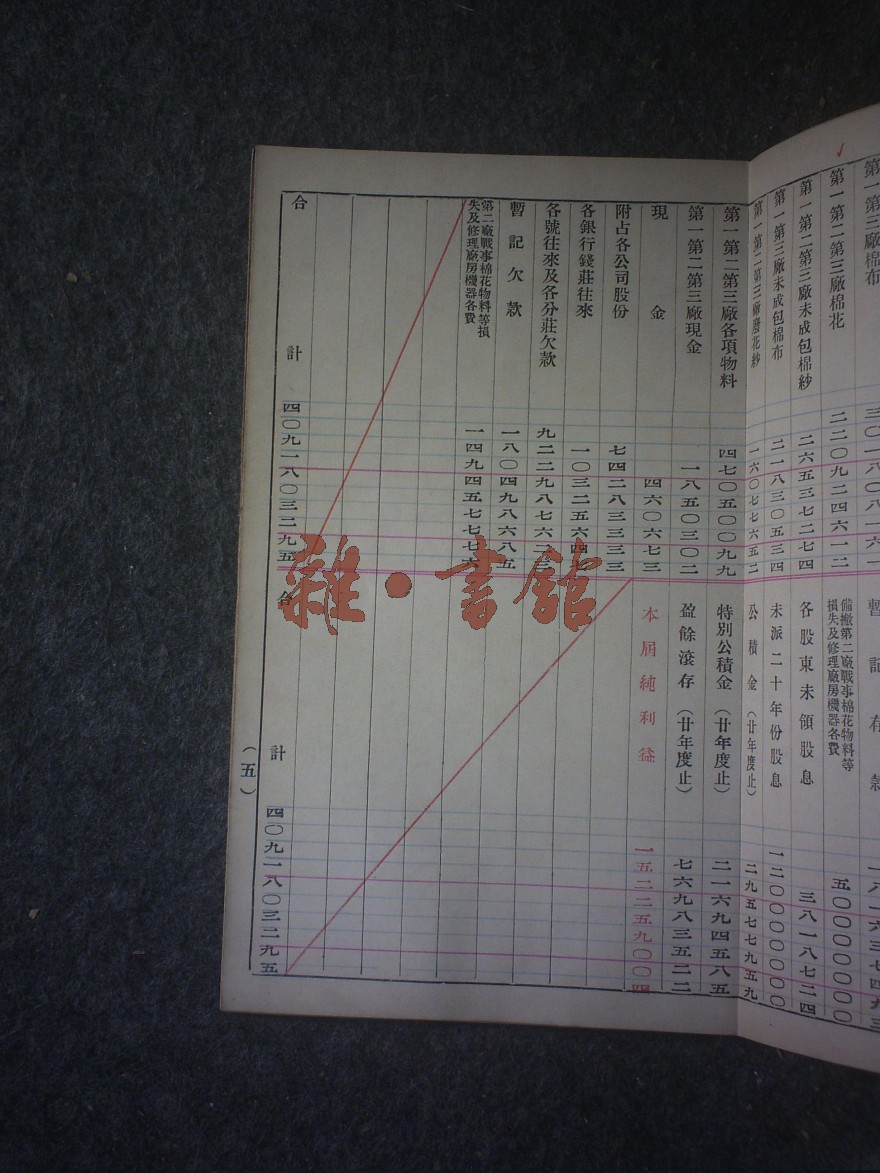 第一第三廠棉布
第一第二第三廠棉花 二二〇九二四六一二
第一第二第三廠未成包棉紗 二六五三七二七四
第一第三廠未成包棉布 二一八三〇五三四
第一第二第三廠廢花紗 一六〇七七六五二
第一第二第三廠各項物料 四七〇五〇〇九九
第一第二第三廠現金 一八五〇三〇二
現金 四六〇六七三
附占各公司股份 七四二八三三三三
各銀行錢莊往來
各號往來及各分莊欠款
暫記欠款 一八〇四九八六八五
第二廠戰事棉花物料等損
失及修理廠房機器各費
合計 四〇九一八〇三二九五
暫記存款
備撤第二廠戰事棉花物料等
損失及修理廠房機器各費 五〇〇〇〇〇〇〇
各股東未領股息 三八一八七二四
未派二十年份股息 一二〇〇〇〇〇〇〇
公積金(廿年度止) 二九五七七九五九
特別公積金(廿年度止) 二一六九四五八五
盈餘滾存(廿年度止) 七六九八三五二二
本屆純利益 一五二二五九〇〇四
合計 四〇九一八〇三二九五
(五)
雜·書館